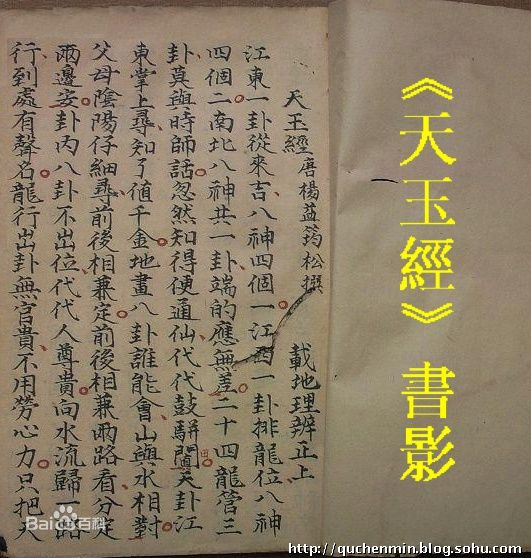 《天玉經》書影
天玉經 唐楊益筠松撰 載地理辨正上
江東一卦從來吉八神四個一江西一卦排龍位八神
四個二南北八神共一卦端的應無差二十四龍管三
卦莫與時師話忽然知得便通仙代代鼓駢闐天卦江
東掌上尋知了值千金地畫八卦誰能會山與水相對
父母陰陽仔細尋前後相兼定前後相兼兩路看分定
兩邊安卦內八卦不出位代代人尊貴向水流歸一路
行到處有聲名龍行出卦無官貴不用勞心力只把天
Baidu百科
http://quchenmin.blog.sohu.com